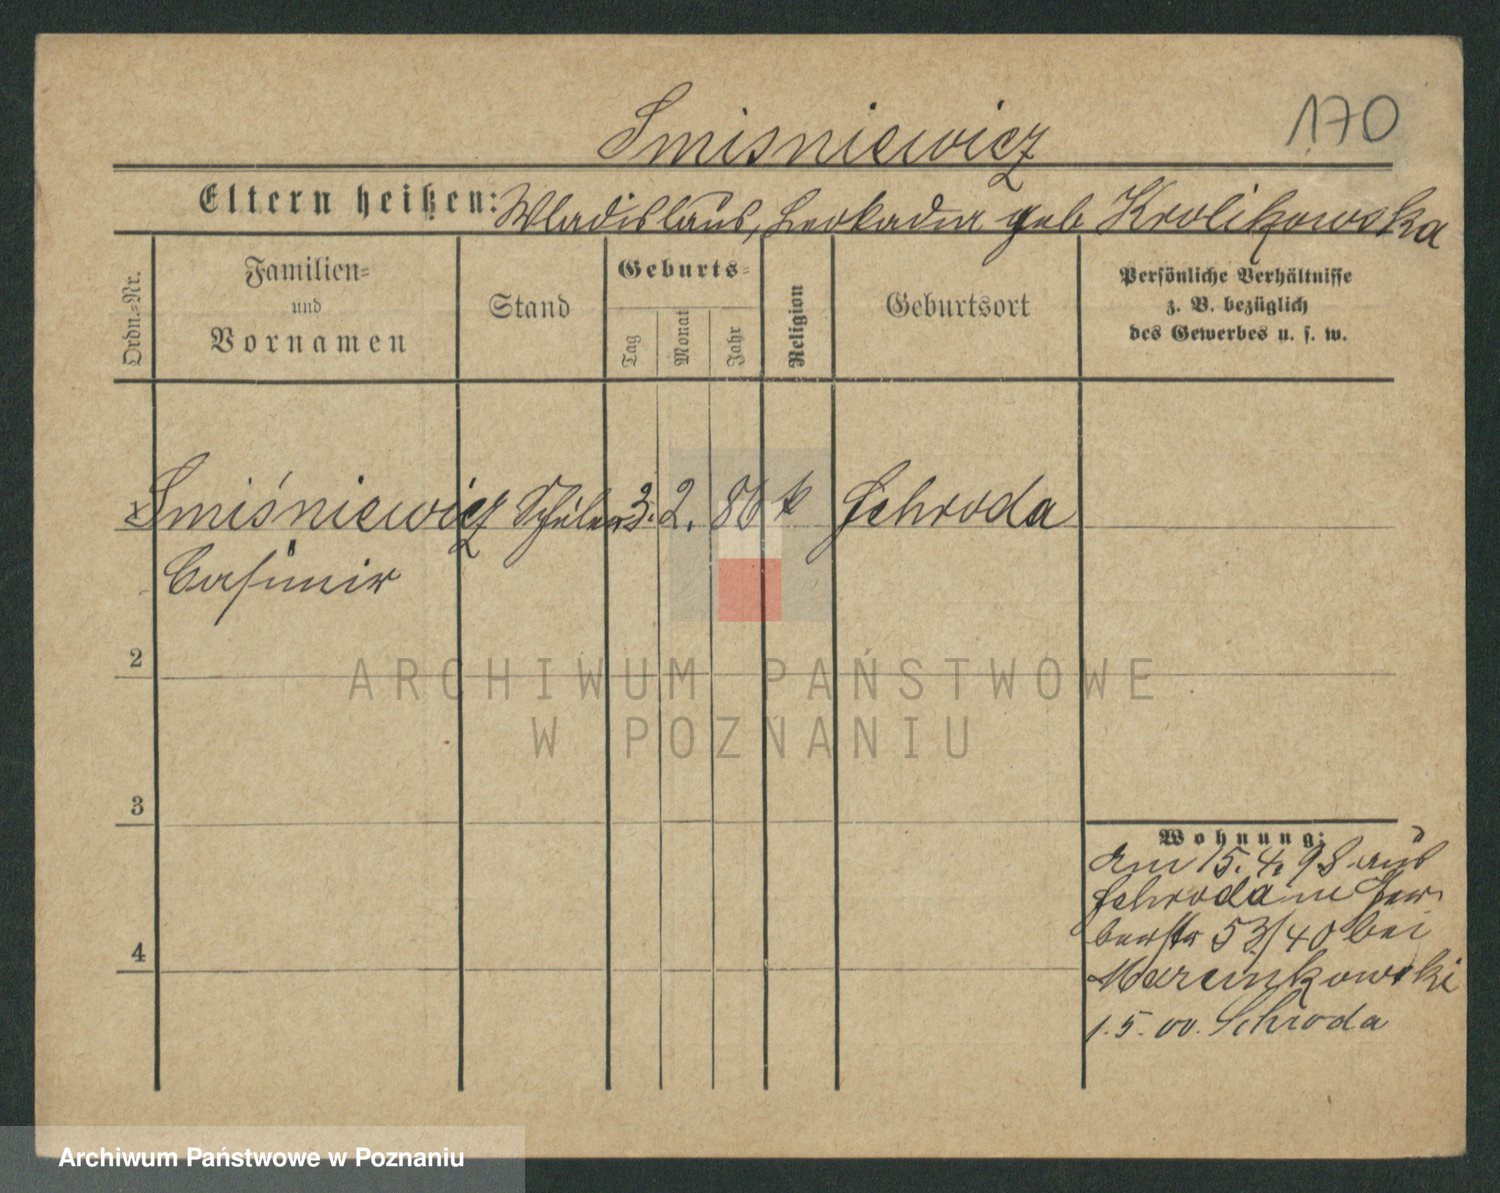 170
Smisniewicz
Eltern heißen: Wladislaus, Leokadia geb Krolikowska
Ordn.=Nr.
Familien=
und
Vornamen
Stand
Geburts=
Tag
Monat
Jahr
Religion
Geburtsort
Persönliche Verhältnisse
z. B. bezüglich
des Gewerbes u. s. w.
1 Smiśniewicz Schüler 3. 2. 86 k Schroda
Casimir
2
ARCHIWUM PAŃSTWOWE
W POZNANIU
3
Wohnung:
Am 15. 4. 98 aus
Schroda
53/40 bei
Marcinkowski
1. 5. 00. Schroda
4
Archiwum Państwowe w Poznaniu